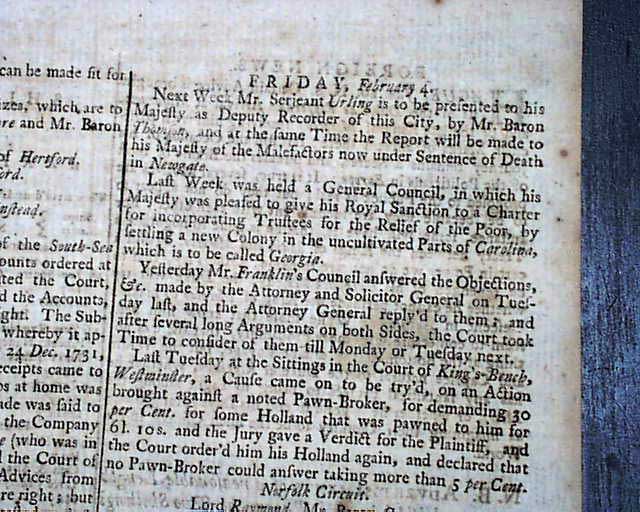 can be made fit for
izes, which are to
ore and Mr. Baron
of Hertford.
ord.
nstead.
of the South-Sea
ounts ordered at
ted the Court,
d the Accounts,
ight. The Sub-
whereby it ap-
24 Dec. 1731,
eceipts came to
ps at home was
ade was said to
the Company
e (who was in
d the Court of
Advices from
re right; but
FRIDAY, February 4.
Next Week Mr. Serjeant Urling is to be presented to his
Majesty as Deputy Recorder of this City, by Mr. Baron
Thomson, and at the same Time the Report will be made to
his Majesty of the Malefactors now under Sentence of Death
in Newgate.
Last Week was held a General Council, in which his
Majesty was pleased to give his Royal Sanction to a Charter
for incorporating Trustees for the Relief of the Poor, by
settling a new Colony in the uncultivated Parts of Carolina,
which is to be called Georgia.
Yesterday Mr. Franklin's Council answered the Objections,
&c. made by the Attorney and Solicitor General on Tues-
day last, and the Attorney General reply'd to them; and
after several long Arguments on both Sides, the Court took
Time to consider of them till Monday or Tuesday next.
Last Tuesday at the Sittings in the Court of King's-Bench,
Westminster, a Cause came on to be try'd, on an Action
brought against a noted Pawn-Broker, for demanding 30
per Cent. for some Holland that was pawned to him for
6l. 10s. and the Jury gave a Verdict for the Plaintiff, and
the Court order'd him his Holland again, and declared that
no Pawn-Broker could answer taking more than 5 per Cent.
Norfolk Circuit.
Lord Raymond, Mr.